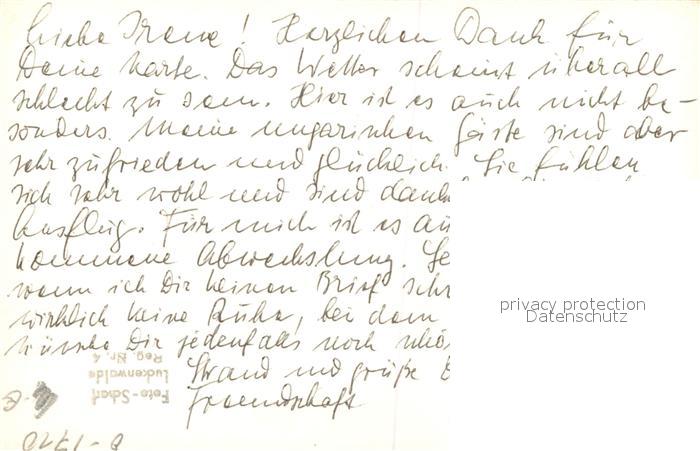 Liebe Irene! Herzlichen Dank für
Deine Karte. Das Wetter scheint überall
schlecht zu sein. Hier ist es auch nicht be-
sonders. Meine ungarischen Gäste sind aber
sehr zufrieden und glücklich. Sie fühlen
sich sehr wohl und sind dank
Ausflug. Für mich ist es au
kommene Abwechslung. Se
wenn ich Dir keinen Brief schr
wirklich keine Ruhe, bei dem
wünsche Dir jedenfalls noch schö
Strand und grüße
Freundschaft
privacy protection
Datenschutz
Foto-Scharf
Luckenwalde
Reg. Nr. 4